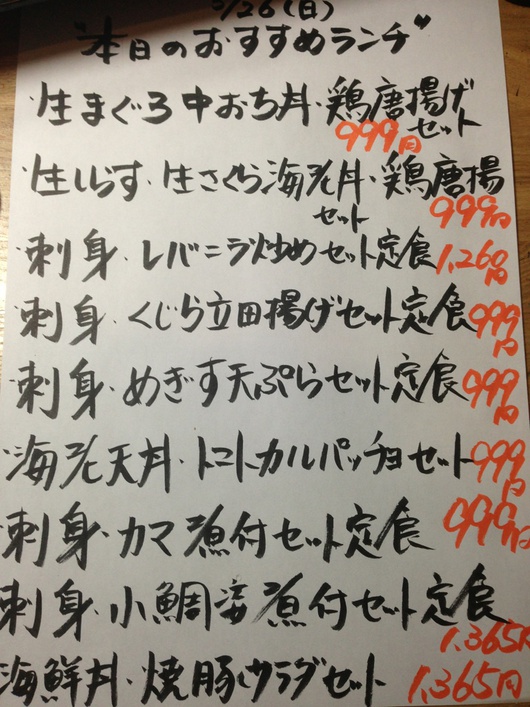 /26(日)
"本日のおすすめランチ"
・生まぐろ中おち丼・鶏唐揚げ
セット
999円
・生しらす・生さくら海老丼・鶏唐揚
セット
999円
・刺身・レバニラ炒めセット定食 1,260円
・刺身・くじら立田揚げセット定食 999円
・刺身・めぎす天ぷらセット定食 999円
・海老天丼・トマトカルパッチョセット 999円
刺身・カマ煮付セット定食 999円
刺身・小鯛姿煮付セット定食
1,365円
海鮮丼・焼豚サラダセット 1,365円